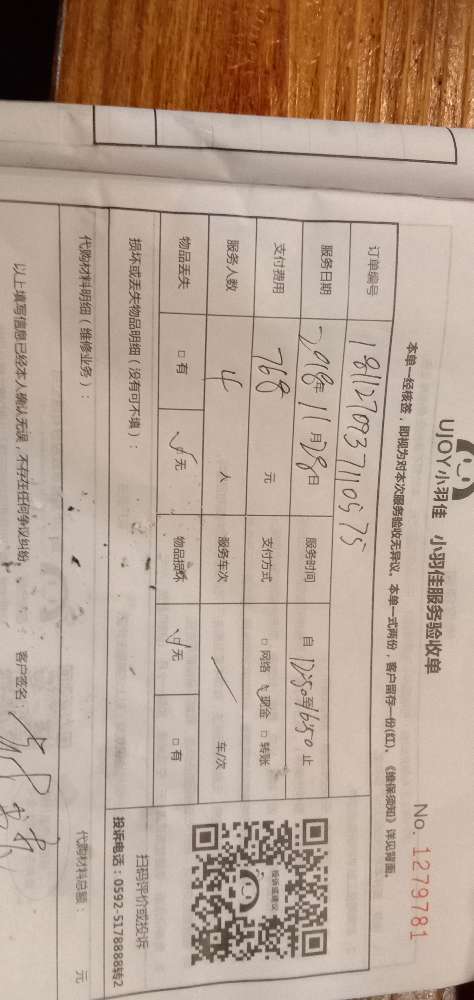 UJOY小羽佳 小羽佳服务验收单
No. 1279781
本单一经核签，即视为对本次服务验收无异议。本单一式两份，客户留存一份(红)、《维保须知》详见背面。
订单编号
服务日期 2018年 11月28日 服务时间 自 12:50至16:50 止
支付费用 768 元 支付方式 □网络 ☑现金 □转账
服务人数 4 人 服务车次 / 车/次
物品丢失 □有 ☑无 物品损坏 ☑无 □有
损坏或丢失物品明细（没有可不填）：
扫码评价或投诉
投诉电话：0592-5178888转2
投诉或建议
代购材料明细（维修业务）：
代购材料总额： 元
以上填写信息已经本人确认无误，不存在任何争议纠纷 客户签名：